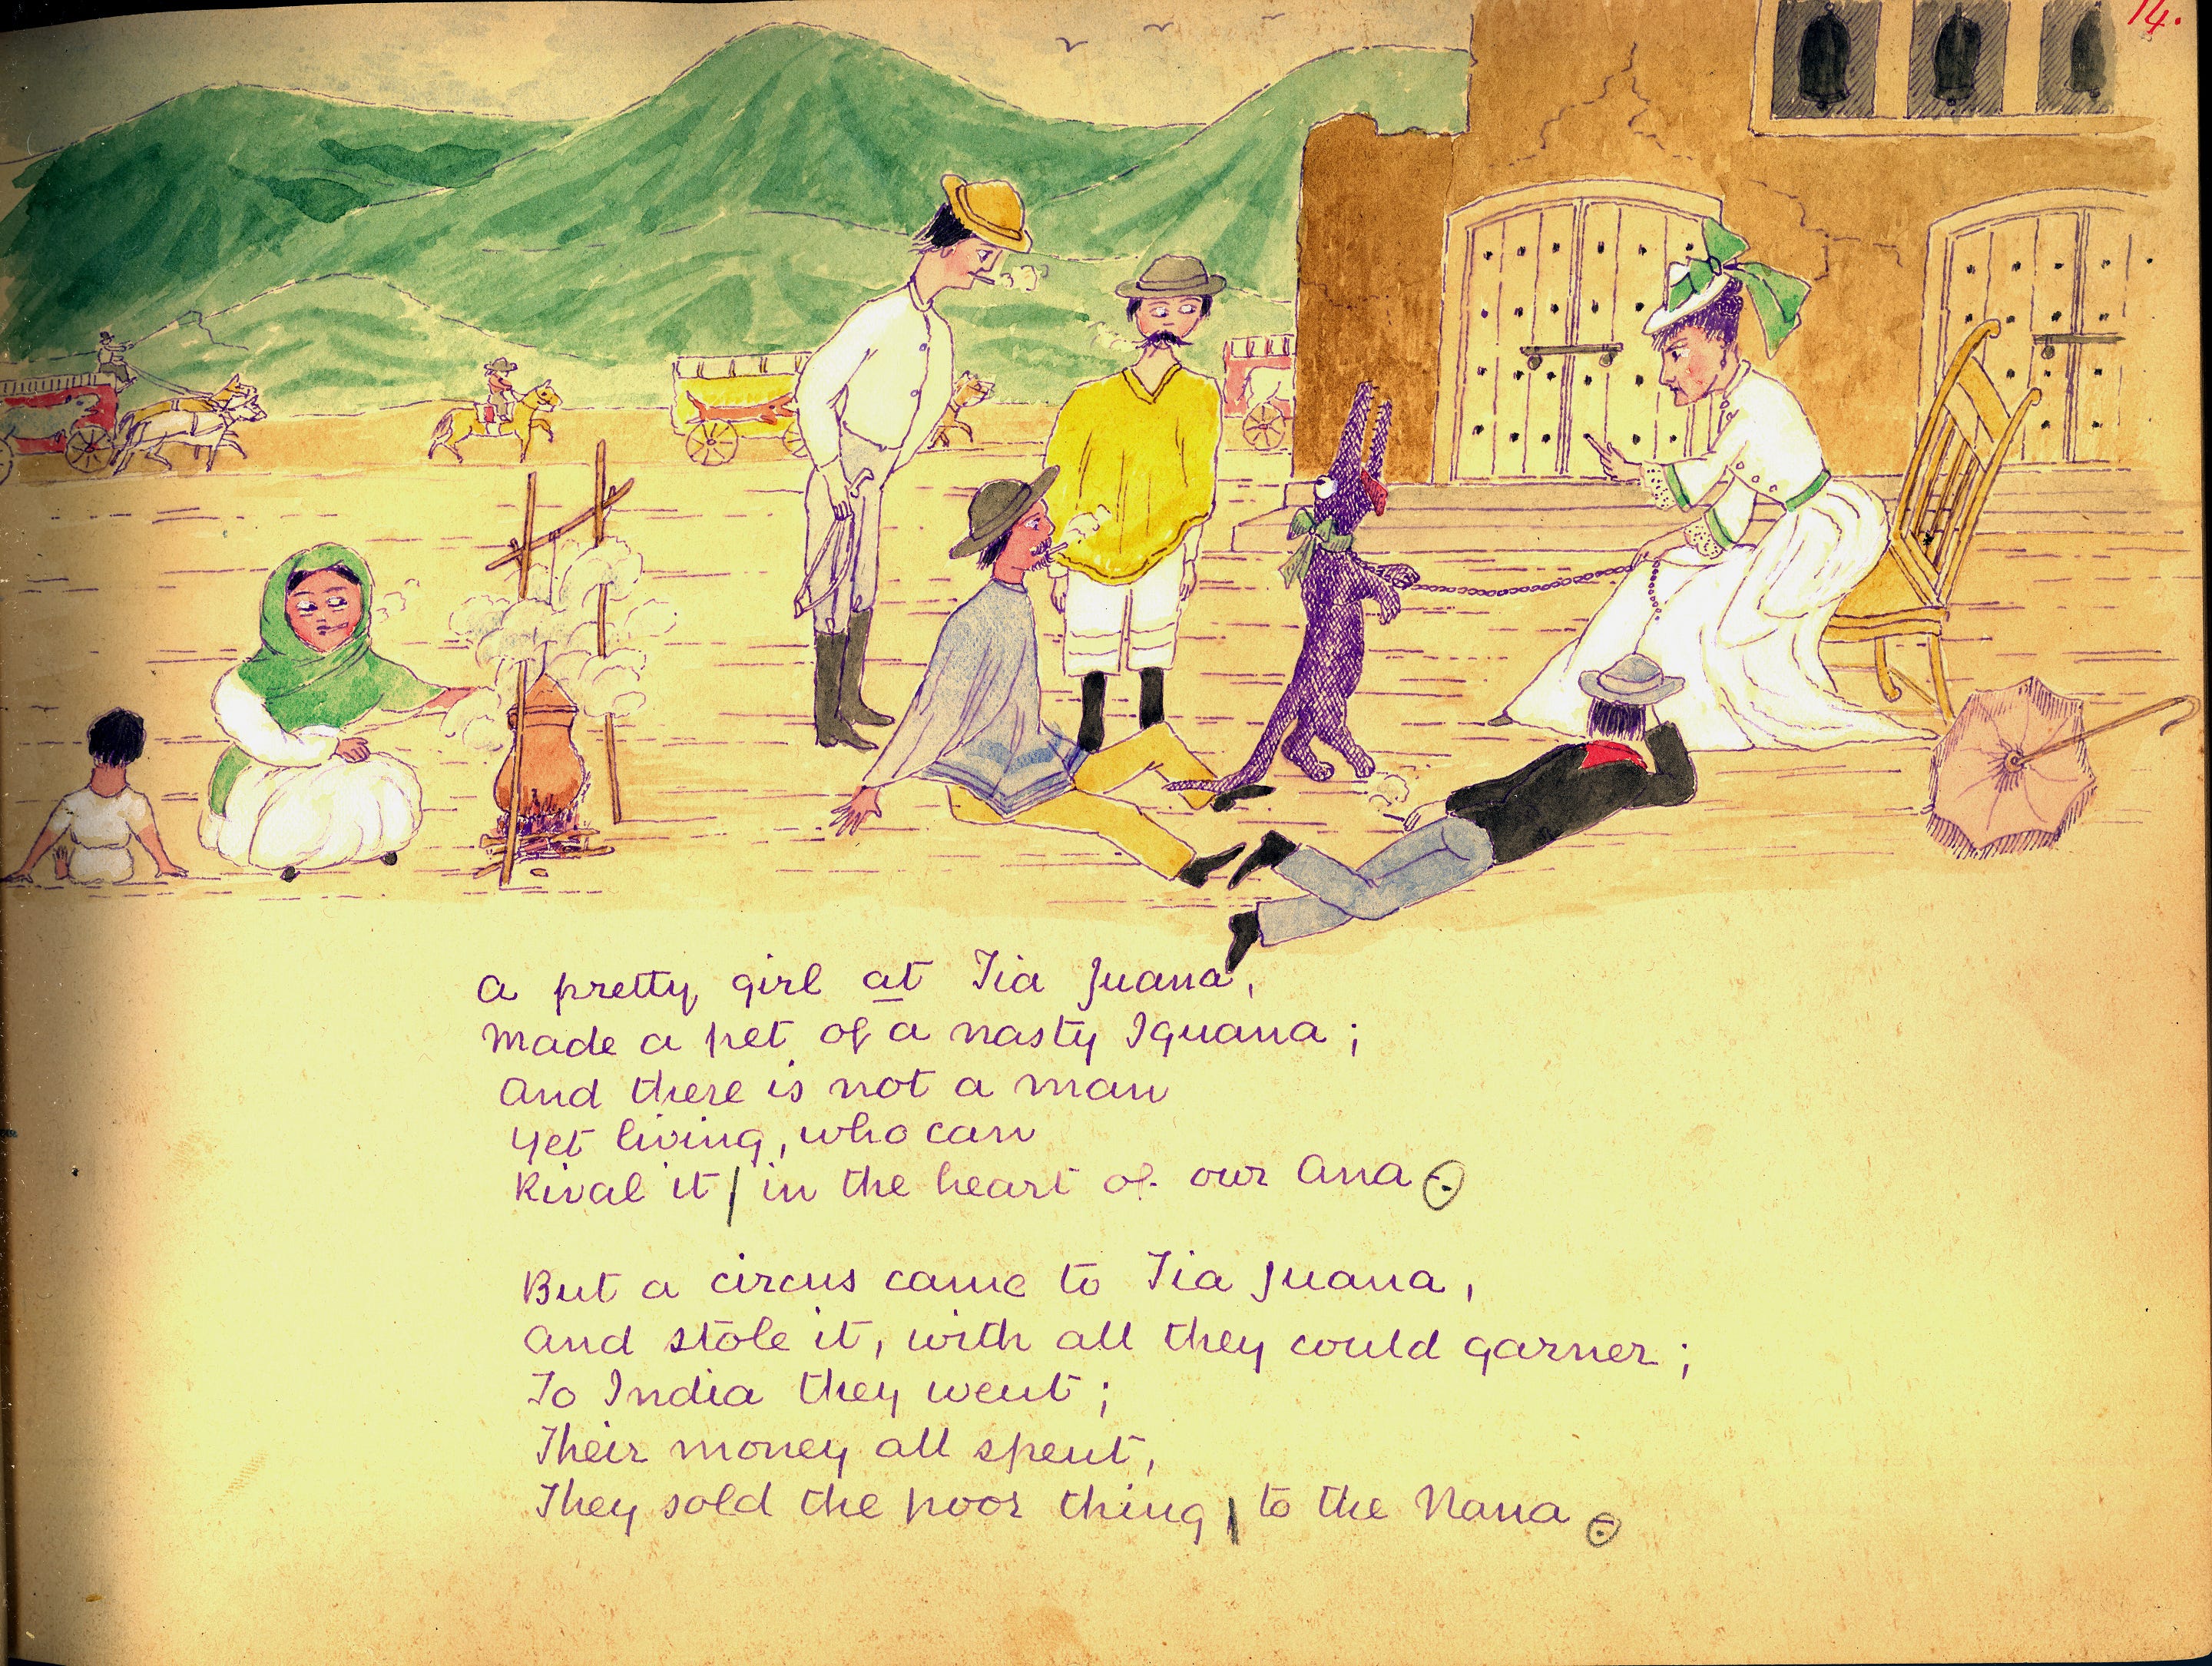 14.
A pretty girl at Tia Juana,
Made a pet of a nasty Iguana;
And there is not a man
Yet living, who can
Rival it in the heart of our Ana.
But a circus came to Tia Juana,
And stole it, with all they could garner;
To India they went;
Their money all spent,
They sold the poor thing to the Nana.